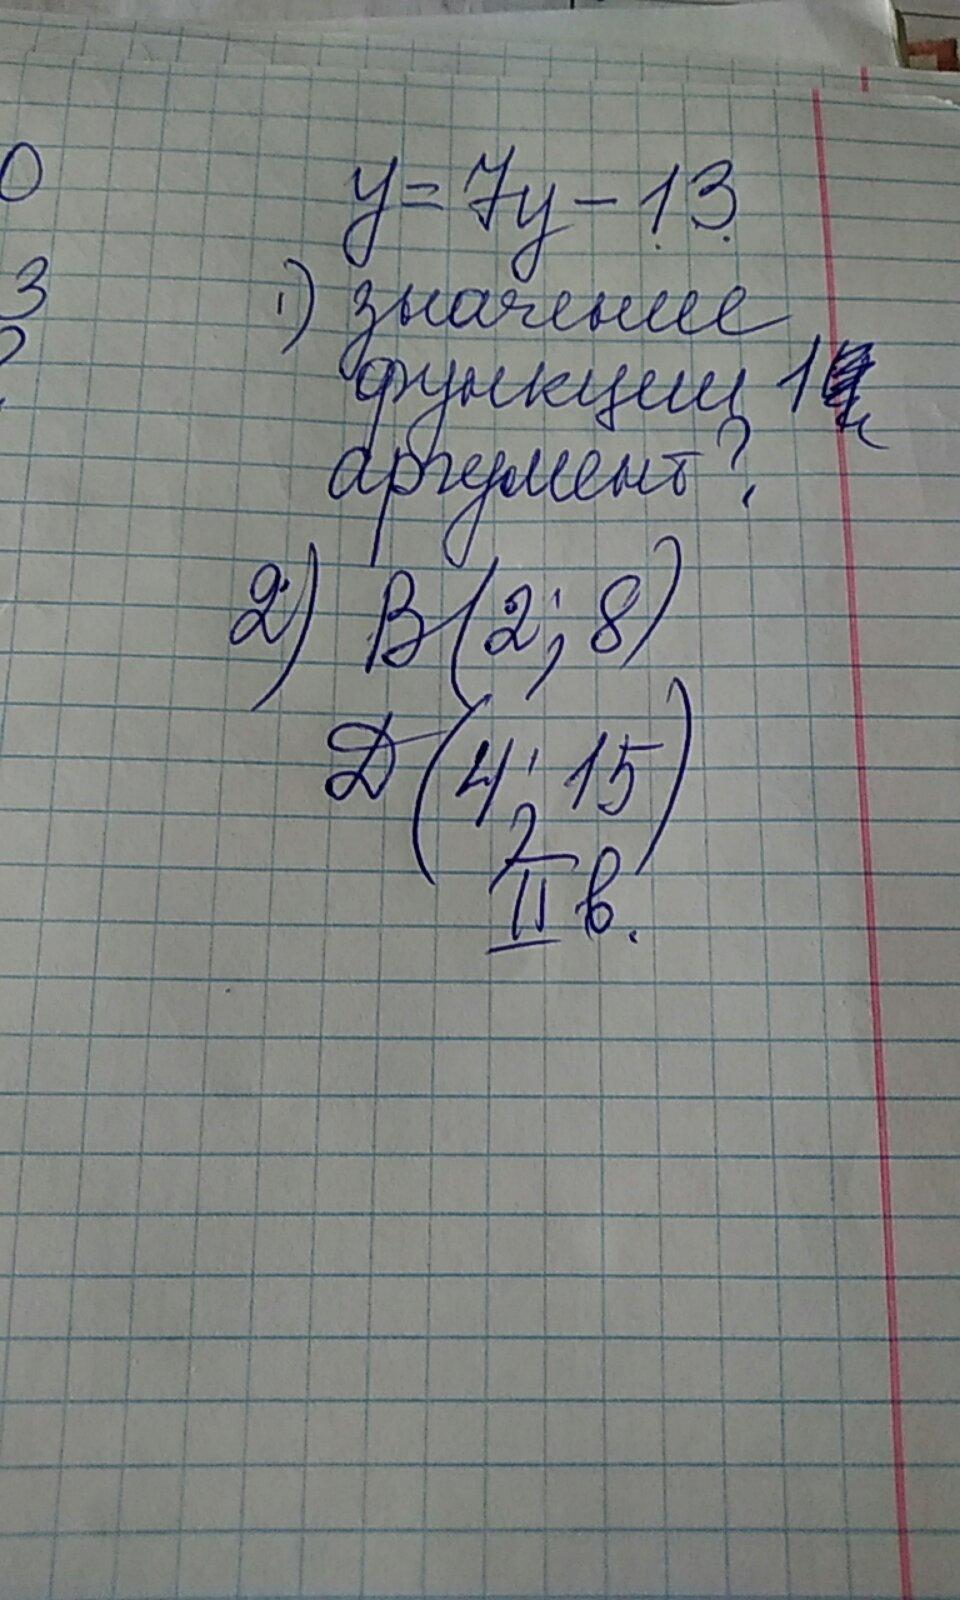 0
3
y=7y-13
1) значение
функции 1
аргумент?
2) В(2; 8)
Д(4; 15)
II в.